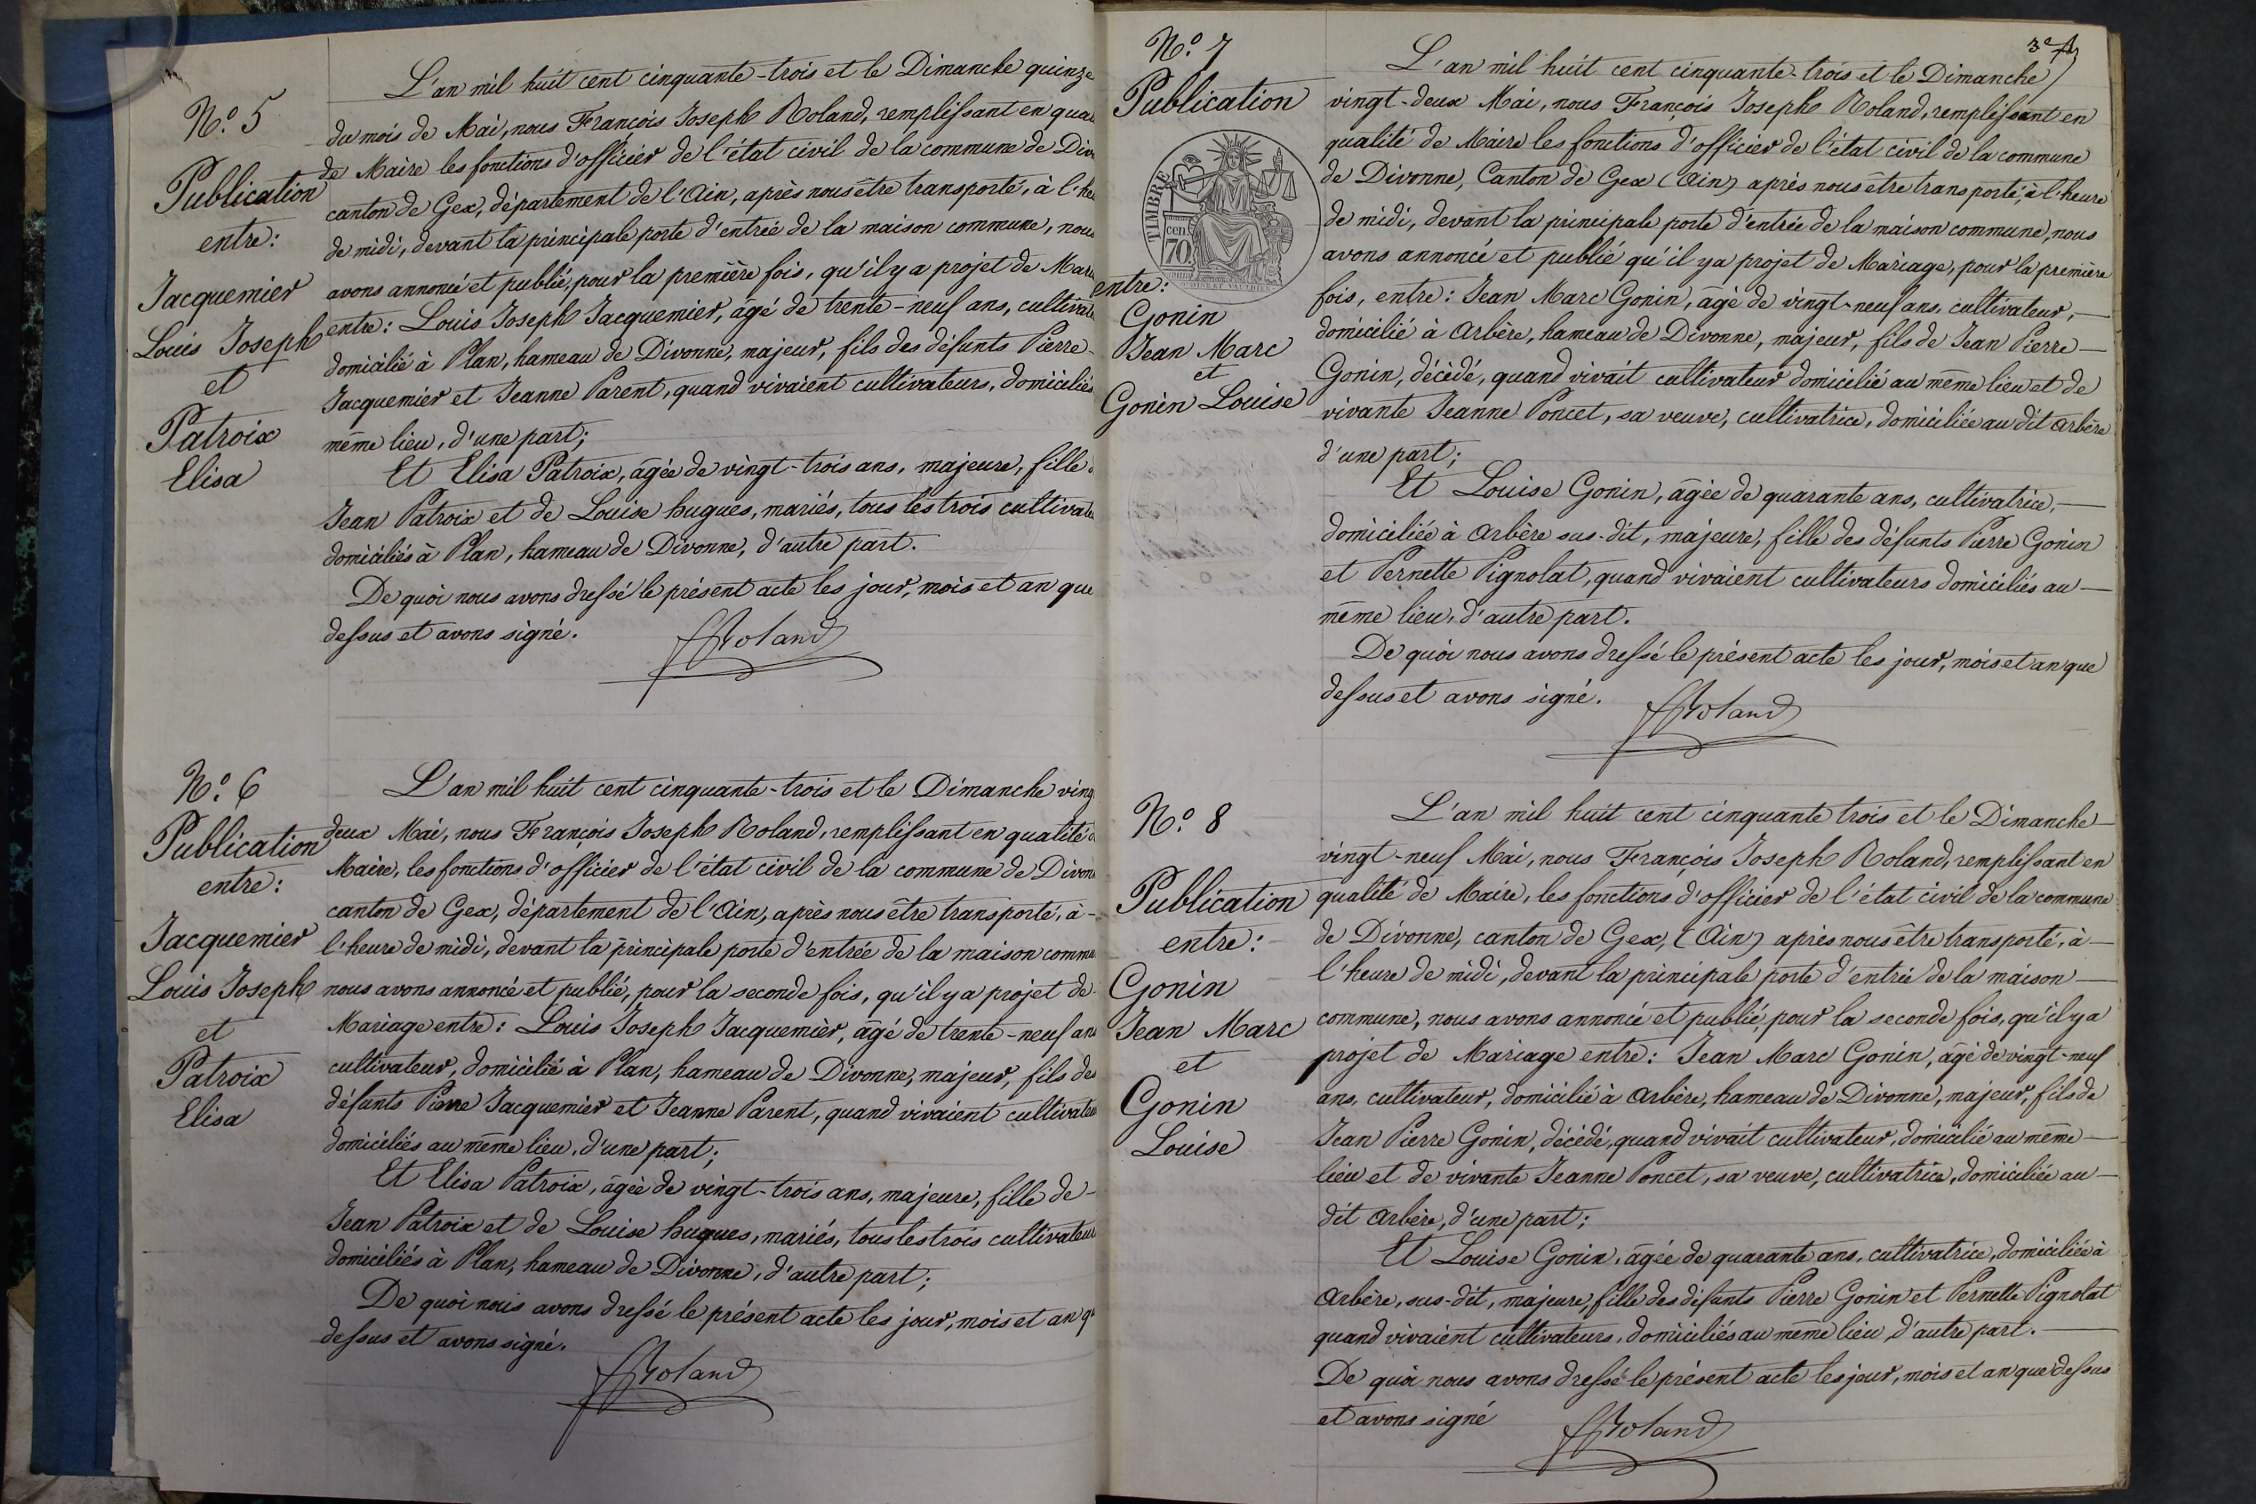 N.º 5
Publication
entre:
Jacquemier
Louis Joseph
et
Patroix
Elisa
L'an mil huit cent cinquante-trois et le Dimanche quinze
du mois de Mai, nous François Joseph Roland, remplissant en qua
de Maire les fonctions d'officier de l'état civil de la commune de Div
canton de Gex, département de l'Ain, après nous être transporté, à l'he
de midi, devant la principale porte d'entrée de la maison commune, nous
avons annoncé et publié, pour la première fois, qu'il y a projet de Mari
entre: Louis Joseph Jacquemier, âgé de trente-neuf ans, cultivate
domicilié à Plan, hameau de Divonne, majeur, fils des défunts Pierre
Jacquemier et Jeanne Parent, quand vivaient cultivateurs, domiciliés
même lieu, d'une part;
Et Elisa Patroix, âgée de vingt-trois ans, majeure, fille d
Jean Patroix et de Louise hugues, mariés, tous les trois cultivate
domiciliés à Plan, hameau de Divonne, d'autre part.
De quoi nous avons dressé le présent acte les jour, mois et an que
dessus et avons signé.
FRoland
N.º 6
Publication
entre:
Jacquemier
Louis Joseph
et
Patroix
Elisa
L'an mil huit cent cinquante-trois et le Dimanche ving
deux Mai, nous François Joseph Roland, remplissant en qualité d
Maire, les fonctions d'officier de l'état civil de la commune de Divon
canton de Gex, département de l'Ain, après nous être transporté, à -
l'heure de midi, devant la principale porte d'entrée de la maison commu
nous avons annoncé et publié, pour la seconde fois, qu'il y a projet de
Mariage entre: Louis Joseph Jacquemier, âgé de trente-neuf ans
cultivateur, domicilié à Plan, hameau de Divonne, majeur, fils des
défunts Pierre Jacquemier et Jeanne Parent, quand vivaient cultivateu
domiciliés au même lieu, d'une part;
Et Elisa Patroix, âgée de vingt-trois ans, majeure, fille de -
Jean Patroix et de Louise hugues, mariés, tous les trois cultivateur
domiciliés à Plan, hameau de Divonne, d'autre part;
De quoi nous avons dressé le présent acte les jour, mois et an q
dessus et avons signé.
FRoland
3e
N.º 7
Publication
TIMBRE
cen
70
entre:
Gonin
Jean Marc
et
Gonin Louise
L'an mil huit cent cinquante-trois et le Dimanche
vingt-deux Mai, nous François Joseph Roland, remplissant en
qualité de Maire les fonctions d'officier de l'état civil de la commune
de Divonne, Canton de Gex (Ain) après nous être transporté, à l'heure
de midi, devant la principale porte d'entrée de la maison commune, nous
avons annoncé et publié qu'il y a projet de Mariage, pour la première
fois, entre: Jean Marc Gonin, âgé de vingt-neuf ans, cultivateur, —
domicilié à Arbère, hameau de Divonne, majeur, fils de Jean Pierre —
Gonin, décédé, quand vivait cultivateur domicilié au même lieu et de
vivante Jeanne Poncet, sa veuve, cultivatrice, domiciliée au dit Arbère
d'une part;
Et Louise Gonin, âgée de quarante ans, cultivatrice, —
domiciliée à Arbère sus-dit, majeure, fille des défunts Pierre Gonin
et Pernette Pignolat, quand vivaient cultivateurs domiciliés au —
même lieu, d'autre part.
De quoi nous avons dressé le présent acte les jour, mois et an que
dessus et avons signé.
FRoland
N.º 8
Publication
entre:
Gonin
Jean Marc
et
Gonin
Louise
L'an mil huit cent cinquante trois et le Dimanche —
vingt-neuf Mai, nous François Joseph Roland, remplissant en
qualité de Maire, les fonctions d'officier de l'état civil de la commune
de Divonne, canton de Gex, (Ain) après nous être transporté, à —
l'heure de midi, devant la principale porte d'entrée de la maison —
commune, nous avons annoncé et publié, pour la seconde fois, qu'il y a
projet de Mariage entre: Jean Marc Gonin, âgé de vingt-neuf
ans, cultivateur, domicilié à Arbère, hameau de Divonne, majeur, fils de
Jean Pierre Gonin, décédé, quand vivait cultivateur, domicilié au même —
lieu et de vivante Jeanne Poncet, sa veuve, cultivatrice, domiciliée au —
dit Arbère, d'une part;
Et Louise Gonin, âgée de quarante ans, cultivatrice, domiciliée à
Arbère, sus-dit, majeure, fille des défunts Pierre Gonin et Pernette Pignolat
quand vivaient cultivateurs, domiciliés au même lieu, d'autre part. —
De quoi nous avons dressé le présent acte les jour, mois et an que dessus
et avons signé
FRoland